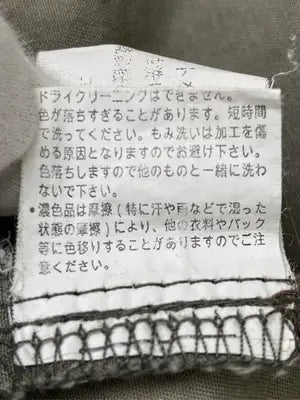 ドライクリーニングはできません。
色が落ちすぎることがあります。短時間
で洗ってください。もみ洗いは加工を傷
める原因となりますのでお避け下さい。
色落ちしますので他のものと一緒に洗わ
ないで下さい。
・濃色品は摩擦(特に汗や雨などで湿った
状態の摩擦)により、他の衣料やバック
等に色移りすることがありますのでご注
意ください。